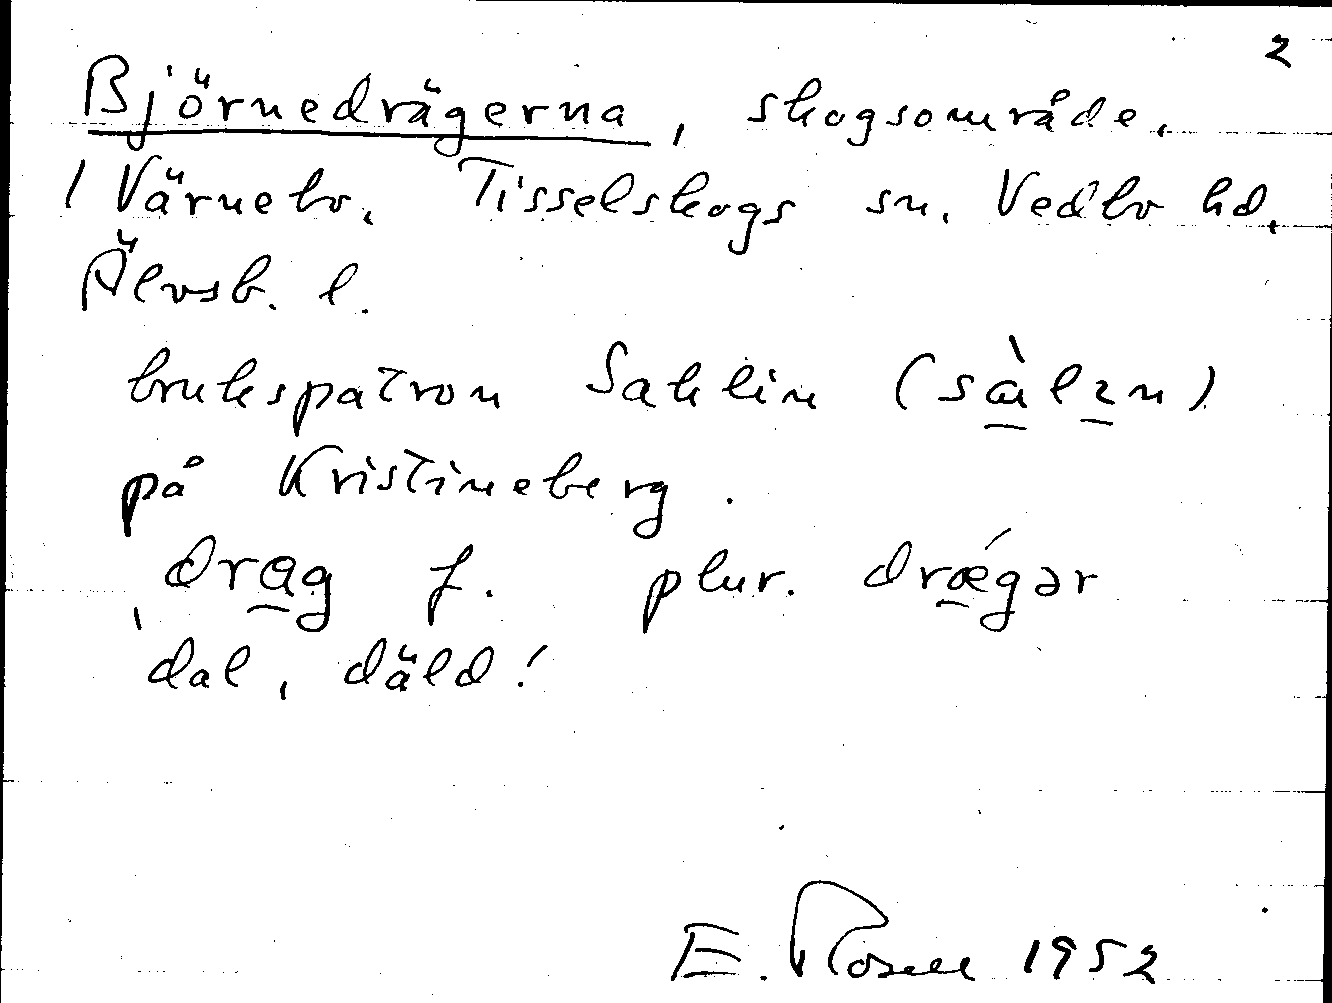 2
Björnedrägerna, skogsområde.
/ Värnebo. Tisselskogs sn. Vedbo hd.
Älvsb. l.
brukspatron Sahlin (sàlın)
på Kristineberg.
drag f. plur. drǽgər
'dal, däld'
E. Rosell 1952